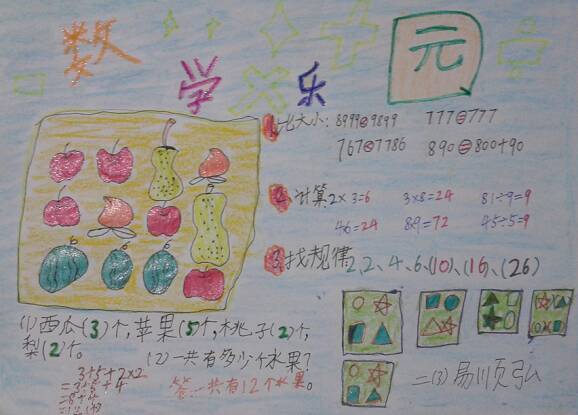 数学乐元
1.比大小: 8999<9899 777=777
767<7786 890=800+90
2.计算 2×3=6 3×8=24 81÷9=9
46=24 89=72 45÷5=9
3.找规律 2、2、4、6、(10)、(16)、(26)
(1)西瓜(3)个,苹果(5)个,桃子(2)个,
梨(2)个。
(2)一共有多少个水果?
3+5+2×2
=3+5+4
=8+4
=12(个)
答:一共有12个水果。
二(3)易顺弘